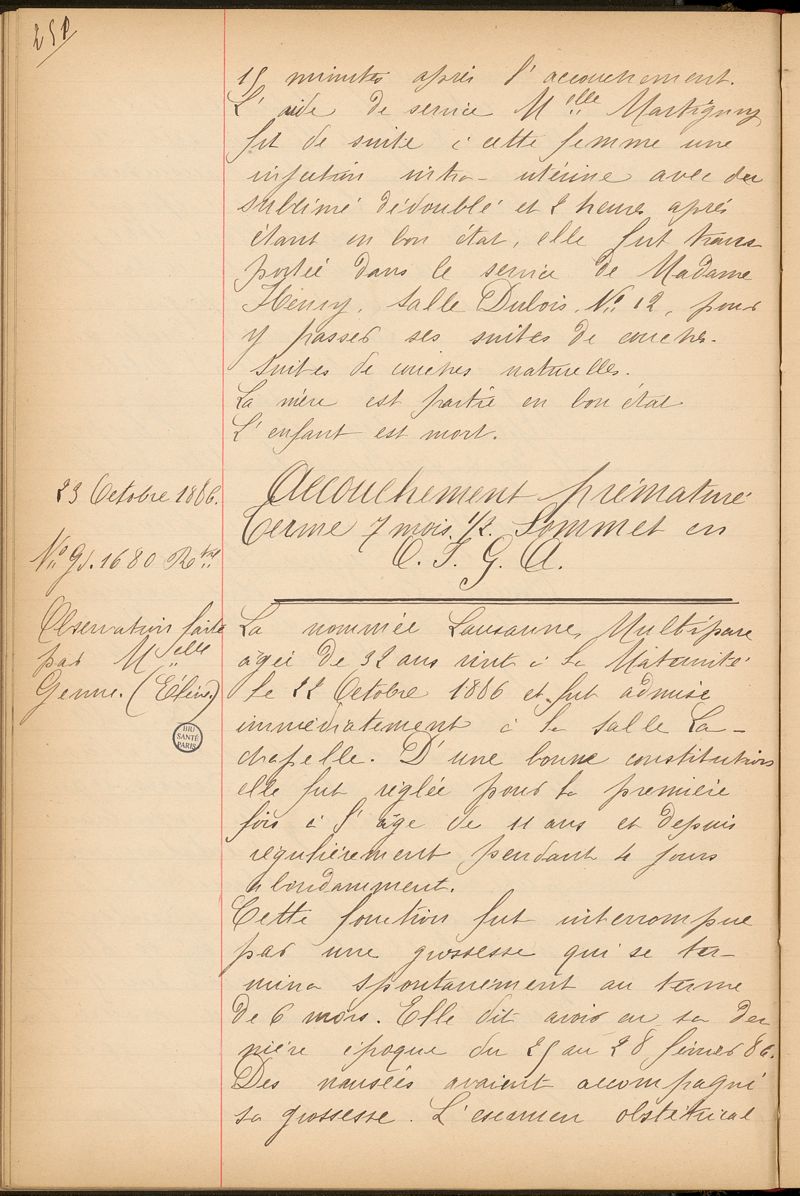 251
15 minutes après l'accouchement.
L'aide de service Melle Martigny
fit de suite à cette femme une
injection intra-utérine avec du
sublimé dédoublé et 2 heures après
étant en bon état, elle fut trans
portée dans le service de Madame
Henry, salle Dubois, No 12, pour
y passer ses suites de couches.
Suites de couches naturelles.
La mère est partie en bon état
L'enfant est mort.
23 Octobre 1886.
Accouchement prématuré
Terme 7 mois 1/2. Sommet en
O. I. G. A.
No Gd. 1680
Observation faite
par Melle
Genne. (Elève)
La nommée Lausanne, Multipare
âgée de 32 ans vint à la Maternité
le 22 Octobre 1886 et fut admise
immédiatement à la salle La-
chapelle. D'une bonne constitution
elle fut réglée pour la première
fois à l'âge de 11 ans et depuis
régulièrement pendant 4 jours
abondamment.
Cette fonction fut interrompue
par une grossesse qui se ter-
mina spontanément au terme
de 6 mois. Elle dit avoir eu sa der
nière époque du 25 au 28 février 86.
Des nausées avaient accompagné
sa grossesse. L'examen obstétrical
BIU
SANTÉ
PARIS